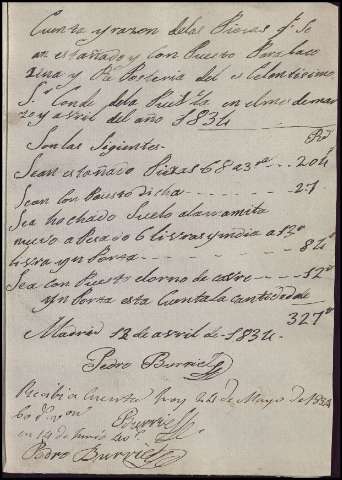 Cuenta y razon de las Piezas q.e Se
an estañado y con Puesto Para la co
zina y Re Posteria del esselentisimo
S.r Conde de la Puebla en el mes de mar
zo y avril del año 1834
Rs
Son las Sigientes
Sean estañado Piezas 68 a 3 rs - - - 204
Sean con Puesto dicha - - - 27
Sea hechado Suelo a la rramita
nuevo a Pesado 6 livras y media a 12 rs
livra yn Porta - - - 84
Sea con Puesto el orno de cavre - - - 12 rs
yn Porta esta Cuenta la cantidad de
327 rs
Madrid 12 de avril de 1834
Pedro Burriel
Recibi a Cuenta hoy 24 de Mayo de 1834
60 rs von
Burriel
en 14 de Junio 40 rs
Pedro Burriel